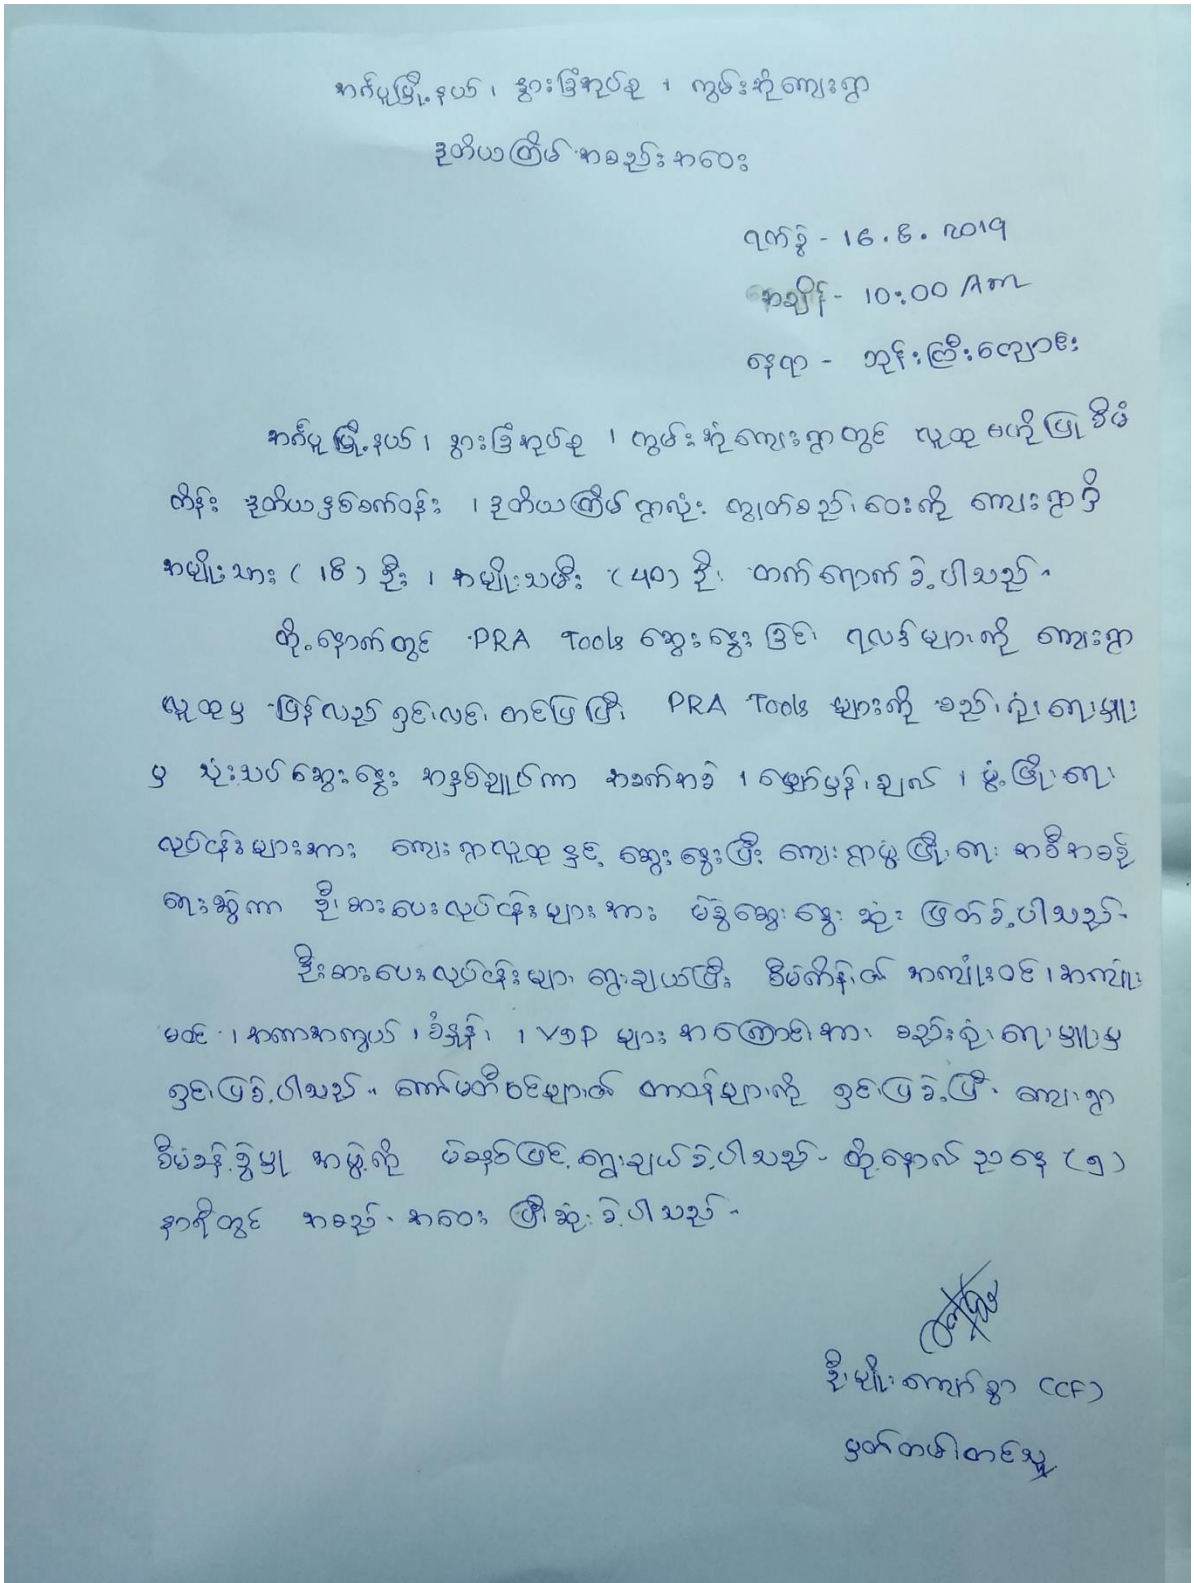 အင်္ဂပူမြို့နယ်၊ နွားခြံအုပ်စု ၊ ကွမ်းအုံကျေးရွာ
ဒုတိယကြိမ် အစည်းအဝေး
ရက်စွဲ - 16.6.2019
အချိန် - 10:00 Am
နေရာ - ဘုန်းကြီးကျောင်း
အင်္ဂပူမြို့နယ်၊ နွားခြံအုပ်စု ၊ ကွမ်းအုံကျေးရွာတွင် လူထုဗဟိုပြုစီမံ
ကိန်း ဒုတိယနှစ်စက်ဝန်း ၊ ဒုတိယကြိမ်ရွာလုံး ကျွတ်စည်းဝေးကို ကျေးရွာရှိ
အမျိုးသား (18) ဦး ၊ အမျိုးသမီး (40) ဦး တက်ရောက်ခဲ့ပါသည်။
ထို့နောက်တွင် PRA Tools ဆွေးနွေးခြင်း ရလဒ်များကို ကျေးရွာ
လူထုမှ ပြန်လည်ရှင်းလင်း တင်ပြပြီး PRA Tools များကို စည်းရုံးရေးမှူး
မှ သုံးသပ်ဆွေးနွေး အနှစ်ချုပ်ကာ အခက်အခဲ ၊ မျှော်မှန်းချက် ၊ ဖွံ့ဖြိုးရေး
လုပ်ငန်းများအား ကျေးရွာလူထုနှင့် ဆွေးနွေးပြီး ကျေးရွာဖွံ့ဖြိုးရေး အစီအစဉ်
ရေးဆွဲကာ ဦးစားပေးလုပ်ငန်းများအား မဲခွဲဆွေးနွေး ဆုံးဖြတ်ခဲ့ပါသည်။
ဦးစားပေးလုပ်ငန်းများ ရွေးချယ်ပြီး စီမံကိန်း၏ အကျုံးဝင်၊ အကျုံး
မဝင် ၊ အကာအကွယ် ၊ စံနှုန်း ၊ VDP များ အကြောင်းအား စည်းရုံးရေးမှူးမှ
ရှင်းပြခဲ့ပါသည်။ ကော်မတီဝင်များ၏ တာဝန်များကို ရှင်းပြခဲ့ပြီး ကျေးရွာ
စီမံခန့်ခွဲမှု အဖွဲ့ကို မဲစနစ်ဖြင့် ရွေးချယ်ခဲ့ပါသည်။ ထို့နောက် ညနေ (၅)
နာရီတွင် အစည်းအဝေး ပြီးဆုံးခဲ့ပါသည်။
ဦးမျိုးကျော်စွာ (CF)
မှတ်တမ်းတင်သူ